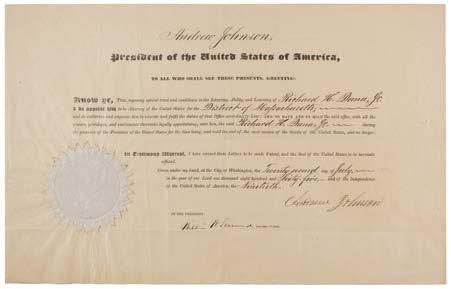 Andrew Johnson,
President of the United States of America,
TO ALL WHO SHALL SEE THESE PRESENTS, GREETING:
Know ye, That, reposing special trust and confidence in the Integrity, Ability, and Learning of Richard H. Dana, Jr.
I do appoint him to be Attorney of the United States for the District of Massachusetts,
and do authorize and empower him to execute and fulfil the duties of that Office according to Law; AND TO HAVE AND TO HOLD the said office, with all the
powers, privileges, and emoluments thereunto legally appertaining, unto him, the said Richard H. Dana, Jr. during
the pleasure of the President of the United States for the time being, and until the end of the next session of the Senate of the United States, and no longer.
In Testimony Whereof, I have caused these Letters to be made Patent, and the Seal of the United States to be hereunto
affixed.
Given under my hand, at the City of Washington, the Twenty second day of July,
in the year of our Lord one thousand eight hundred and Sixty five and of the Independence
of the United States of America, the Ninetieth.
Andrew Johnson
BY THE PRESIDENT: